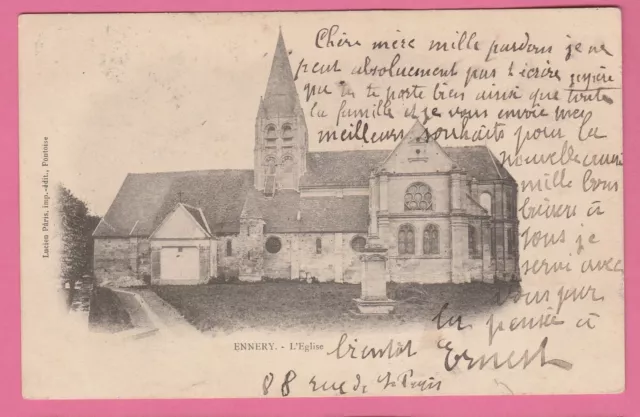 Chère mère mille pardons je ne
peut absolument pas t'écrire j'espère
que tu te porte bien ainsi que toute
la famille et je vous envoie mes
meilleurs souhaits pour la
nouvelle année
mille bons
baisers à
tous je
serai avec
vous par
la pensée à
bientot Ernest
88 rue de
ENNERY. - L'Eglise
Lucien Pâris, imp.-édit., Pontoise